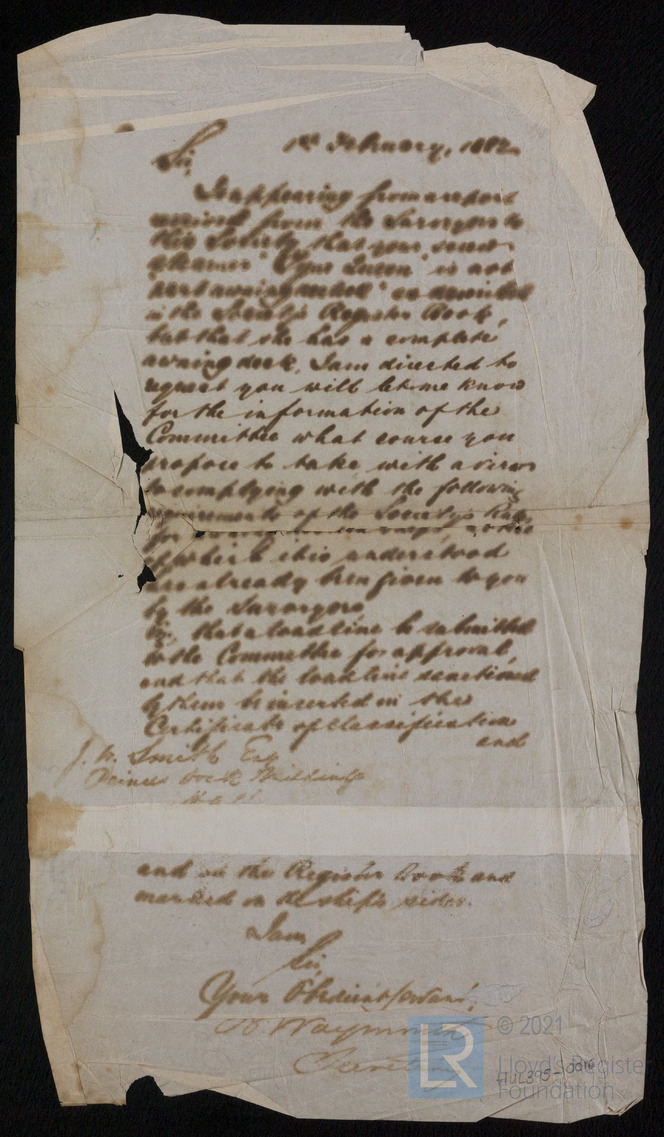 1st February, 1882
Sir,
It appearing from a report
received from the Surveyors to
this Society that your screw
steamer "Tyne Queen" is not
"part awning decked" as described
in the Society's Register Book,
but that she has a complete
awning deck, I am directed to
request you will let me know
for the information of the
Committee what course you
propose to take with a view
to complying with the following
requirements of the Society's Rules
for
of which it is understood
has already been given to you
by the Surveyors
viz, that a load line be submitted
to the Committee for approval,
and that the load line sanctioned
by them be inserted in the
Certificate of Classification
and
J. W. Smith Esq
Princes Dock Buildings
and in the Register Book and
marked on the ship's sides.
I am,
Sir,
Your Obedient Servant,
B. Waymouth
Secretary
LR
© 2021
Lloyd's Register
Foundation
HUL395-0016